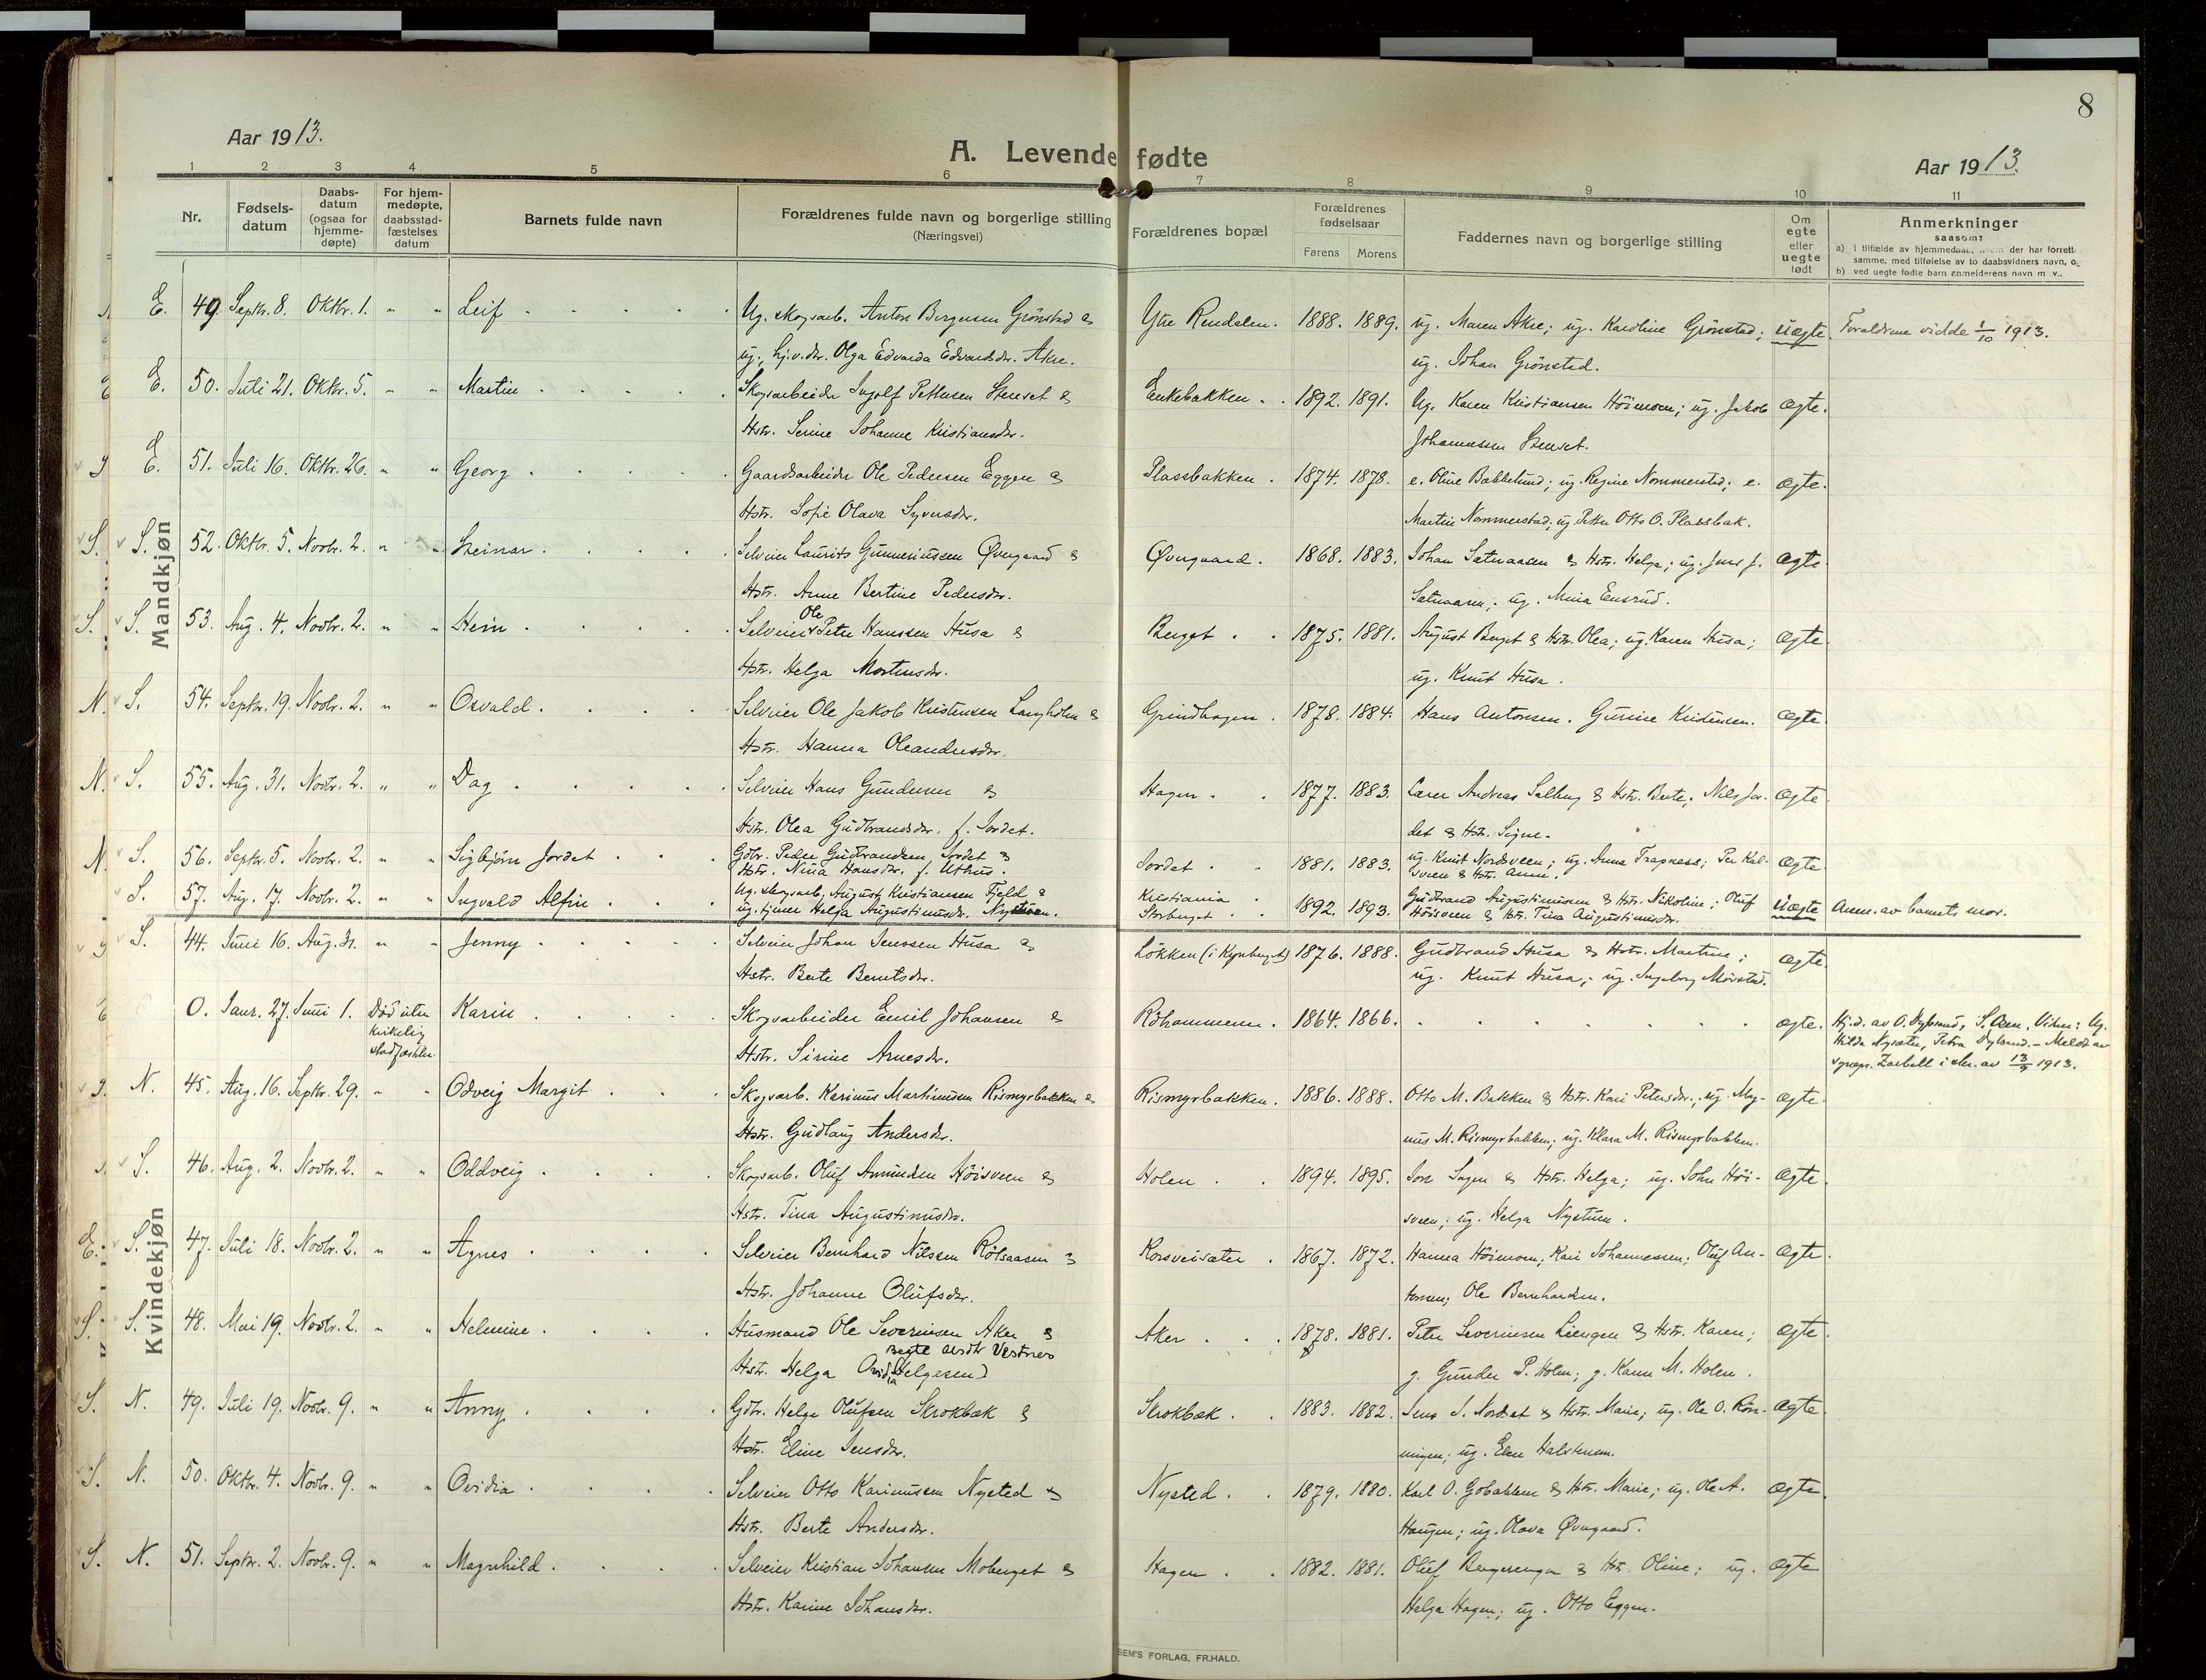 8
Aar 1913.
A. Levende fødte
Aar 1913.
1 2 3 4 5 6 7 8 9 10 11
Nr.
Fødsels-
datum
Daabs-
datum
(ogsaa for
hjemme-
døpte)
For hjem-
medøpte,
daabsstad-
fæstelses
datum
Barnets fulde navn
Forældrenes fulde navn og borgerlige stilling
(Næringsvei)
Forældrenes bopæl
Forældrenes
fødselsaar
Farens Morens
Faddernes navn og borgerlige stilling
Om
egte
eller
uegte
født
Anmerkninger
saasom:
a) i tilfælde av hjemmedaab, der har forrett
samme, med tilføielse av to daabsvidners navn, o
b) ved uegte fødte barn anmelderens navn m v..
Mandkjøn
E. 49. Septr. 8. Oktbr. 1. " " Leif Ug. skogsarb. Anton Bergersen Grönstad & Ytre Rendalen. 1888. 1889. ug. Maren Akre; ug. Karoline Grönstad; uegte. Forældrene viede 1/10 1913.
ug. hj.v. dtr. Olga Edvarda Edvardsdtr. Akre. ug. Johan Grönstad.
E. 50. Juli 21. Oktbr. 5. " " Martin Skogsarbeider Ingolf Pettersen Stenset & Enkebakken. 1892. 1891. Ug. Karen Kristiansen Höimoen; ug. Jakob egte.
Hstr. Serine Johanne Kristiansdtr. Johannessen Stenset.
E. 51. Juli 16. Oktbr. 26. " " Georg Gaardsarbeider Ole Pedersen Eggen & Plassbakken. 1874. 1878. e. Oline Bakkelund; ug. Regine Nommerstad; e. egte.
Hstr. Sofie Olava Syversdtr. Martin Nommerstad; ug. Petter Otto O. Plassbak.
S. S. 52. Oktbr. 5. Novbr. 2. " " Steinar. Selveier Laurits Gunneriussen Øvergaard & Øvergaard. 1868. 1883. Johan Sætnaasen & Hstr. Helga; ug. Jens J. egte.
Hstr. Anne Bertine Pedersdtr. Sætnaasen; ug. Mina Ensrud.
S. S. 53. Aug. 4. Novbr. 2. " " Stein Selveier Ole Peter Hanssen Husa & Berget. 1875. 1881. August Berget & Hstr. Olea; ug. Karen Husa; egte.
Hstr. Helga Mortensdtr. ug. Knut Husa.
N. S. 54. Septr. 19. Novbr. 2. " " Osvald. Selveier Ole Jakob Kristensen Langholen & Grindhagen. 1878. 1884. Hans Antonsen. Gunine Kristensen. egte.
Hstr. Hanna Oleandersdtr.
N. S. 55. Aug. 31. Novbr. 2. " " Dag Selveier Hans Gundersen & Hagen. 1877. 1883. Lærer Andreas Salberg & Hstr. Berte; Nils Jor- egte.
Hstr. Olea Gudbrandsdtr. f. Jordet. det & Hstr. Signe.
N. S. 56. Septr. 5. Novbr. 2. " " Sigbjörn Jordet Gdbr. Peder Gudbrandsen Jordet & Jordet 1881. 1883. ug. Knut Nordsveen; ug. Anna Trapness; Per egte.
Hstr. Nina Hansdtr. f. Uthus. & Hstr. Anne.
S. 57. Aug. 17. Novbr. 2. " " Ingvald Alfin Ug. skogsarb. August Kristiansen Fjeld & Kristiania 1892. 1893. Gudbrand Augustinussen & Hstr. Nikoline; Oluf uegte Anm. av barnets mor.
ug. tjener Helga Augustinusdtr. Nystuen. Storberget Höisveen & Hstr. Tina Augustinusdtr.
Kvindekjøn
S. 44. Juni 16. Aug. 31. " Jenny Selveier Johan Jenssen Husa & Lökken (i Kynberget) 1876. 1888. Gudbrand Husa & Hstr. Martine; egte.
Hstr. Berte Berntsdtr. ug. Knut Husa; ug. Ingeborg Mörstad.
0. Janr. 27. Juni 1. Död uten Karin Skogsarbeider Emil Johansen & Röhammeren. 1864. 1866. egte. Hj.d. av O. Dybsund, S. Aen. Vidner: Ug.
kirkelig Hstr. Sirine Arnesdtr. Hilda Nysæter, Petra Dybsund. - Meldt av
stadfæstelse. sognepr. i skr. av 13/9 1913.
N. 45. Aug. 16. Septr. 29. " " Odveig Margit Skogsarb. Karinus Martinusen Rismyrbakken & Rismyrbakken. 1886. 1888. Otto M. Bakken & Hstr. Kari Petersdtr.; ug. Mag- egte.
Hstr. Gudlaug Andersdtr. nus M. Rismyrbakken; ug. Klara M. Rismyrbakken.
S. 46. Aug. 2. Novbr. 2. " " Oddveig Skogsarb. Oluf Amundsen Höisveen & Holen 1894. 1895. Jon Sagen & Hstr. Helga; ug. John Höi- egte.
Hstr. Tina Augustinusdtr. sveen; ug. Helga Nystuen.
E. S. 47. Juli 18. Novbr. 2. " " Agnes Selveier Bernhard Nilssen Rölsaasen & Korsveisæter 1867. 1872. Hanna Höimoen; Kari Johannessen; Oluf An- egte.
Hstr. Johanne Olufsdtr. tonsen; Ole Bernhardsen.
S. S. 48. Mai 19. Novbr. 2. " " Helmine Husmand Ole Severinsen Aker & Aker 1878. 1881. Peter Severinsen Liengen & Hstr. Karen; egte.
Hstr. Helga Ovidia Helgesen) g. Gunder P. Holen; g. Karen M. Holen.
S. N. 49. Juli 19. Novbr. 9. " " Anny Gdbr. Helge Olufsen Skrokbæk & Skrokbæk. 1883. 1882. Jens S. Nordset & Hstr. Marie; ug. Ole O. Rön- egte.
Hstr. Eline Jensdtr. ningen; ug. Elen Halstensen.
S. N. 50. Oktbr. 4. Novbr. 9. " " Ovidia Selveier Otto Karinussen Nysted & Nysted 1879. 1880. Karl O. Gobakken & Hstr. Marie; ug. Ole A. egte.
Hstr. Berte Andersdtr. Haugen; ug. Olava Øvergaard.
S. N. 51. Septr. 2. Novbr. 9. " " Magnhild Selveier Kristian Johansen Moberget & Hagen 1882. 1881. Oluf Bergerengen & Hstr. Oline; ug. egte
Hstr. Karine Johansdtr. Helga Hagen; ug. Otto Eggen.
SEM'S FORLAG, FR.HALD.